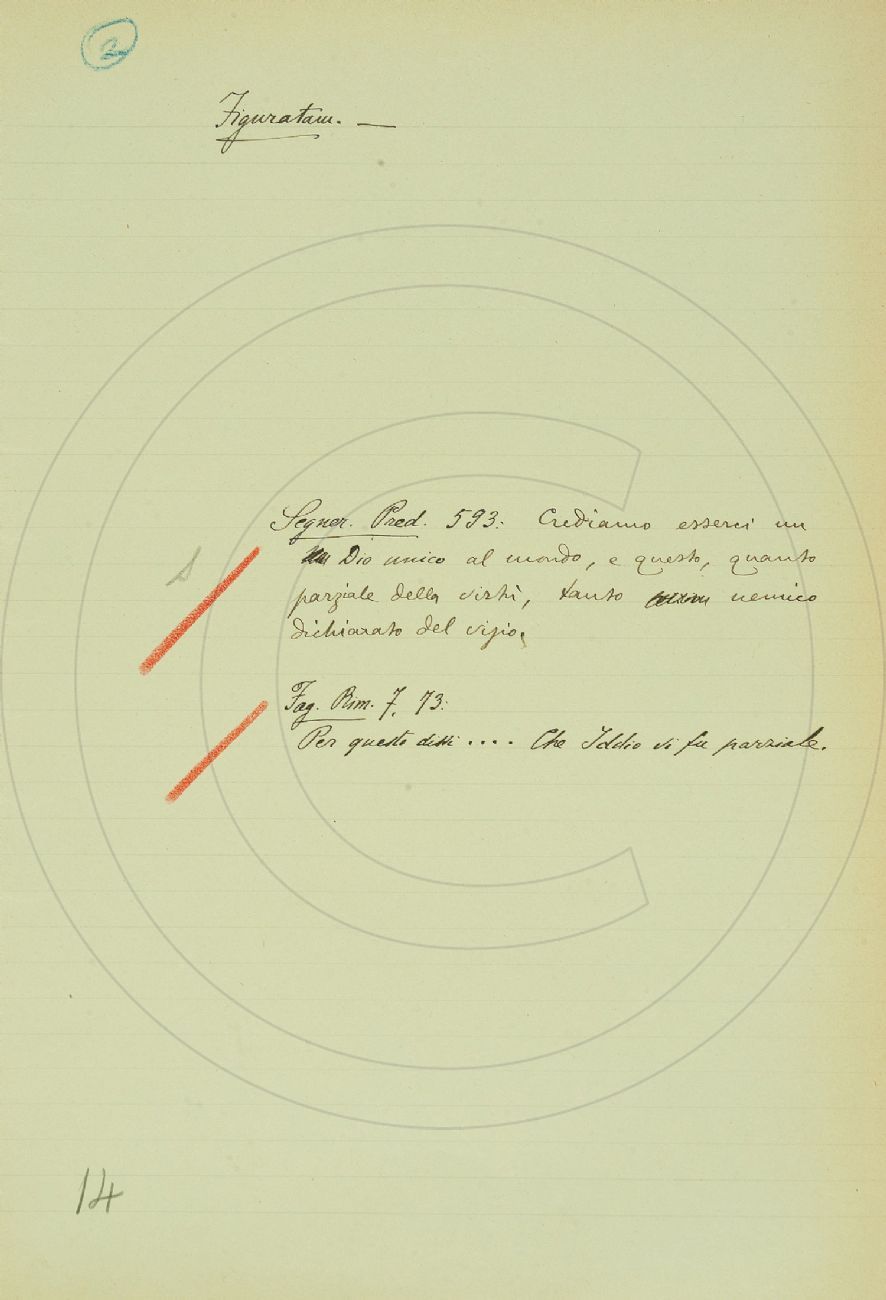 2
Figuratam. —
Segner. Pred. 593: Crediamo esserci un
Dio unico al mondo, e questo, quanto
parziale della virtù, tanto nemico
dichiarato del vizio.
Fag. Rim. 7. 73:
Per questo dissi .... Che Iddio vi fu parziale.
14